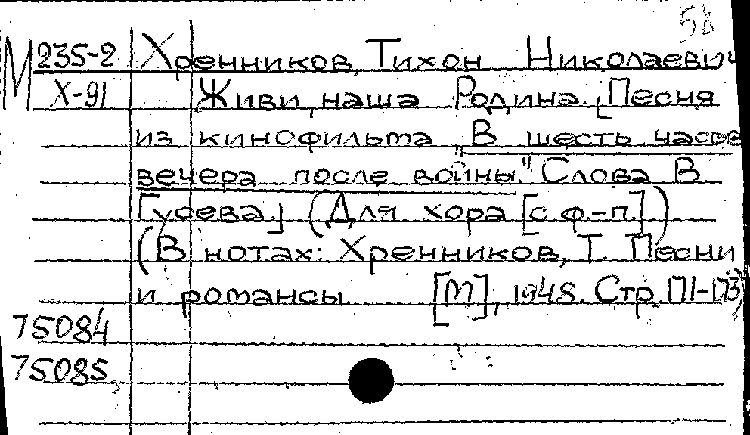 58
М 235-2 Хренников, Тихон Николаевич
Х-91 Живи, наша Родина. [Песня
из кинофильма "В шесть часов
вечера после войны." Слова В
Гусева.] (Для хора [с ф-п])
(В нотах: Хренников, Т. Песни
и романсы [М], 1948. Стр. 171-173)
75084
75085